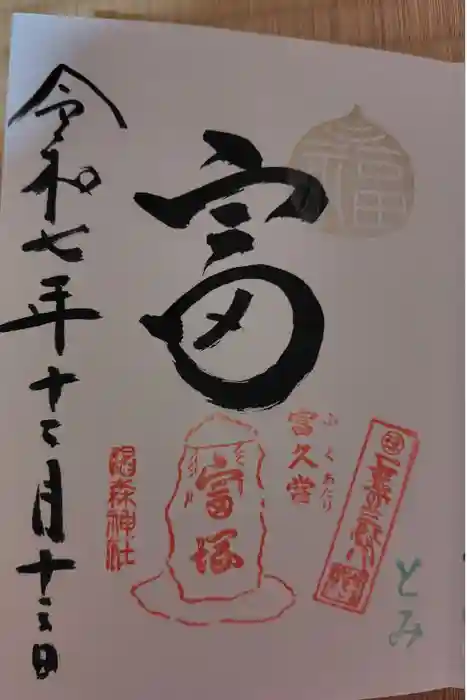 福
富
とみ
富久當
ふくあたり
富塚
椙森神社
令和七年十二月十三日